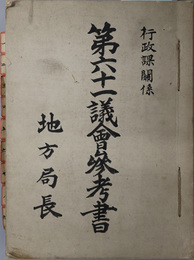 行政課關係
第六十一議會參考書
地方局長